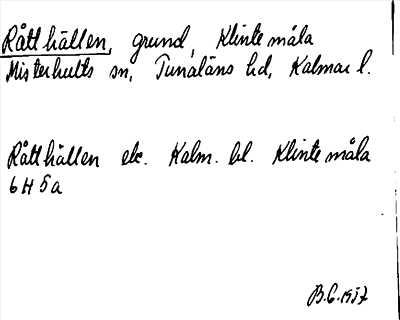 Råtthällen, grund, Klintemåla
Misterhults sn, Tunaläns hd, Kalmar l.
Råtthällen ek. Kalm. bl. Klintemåla
6H5a
B.G. 1957